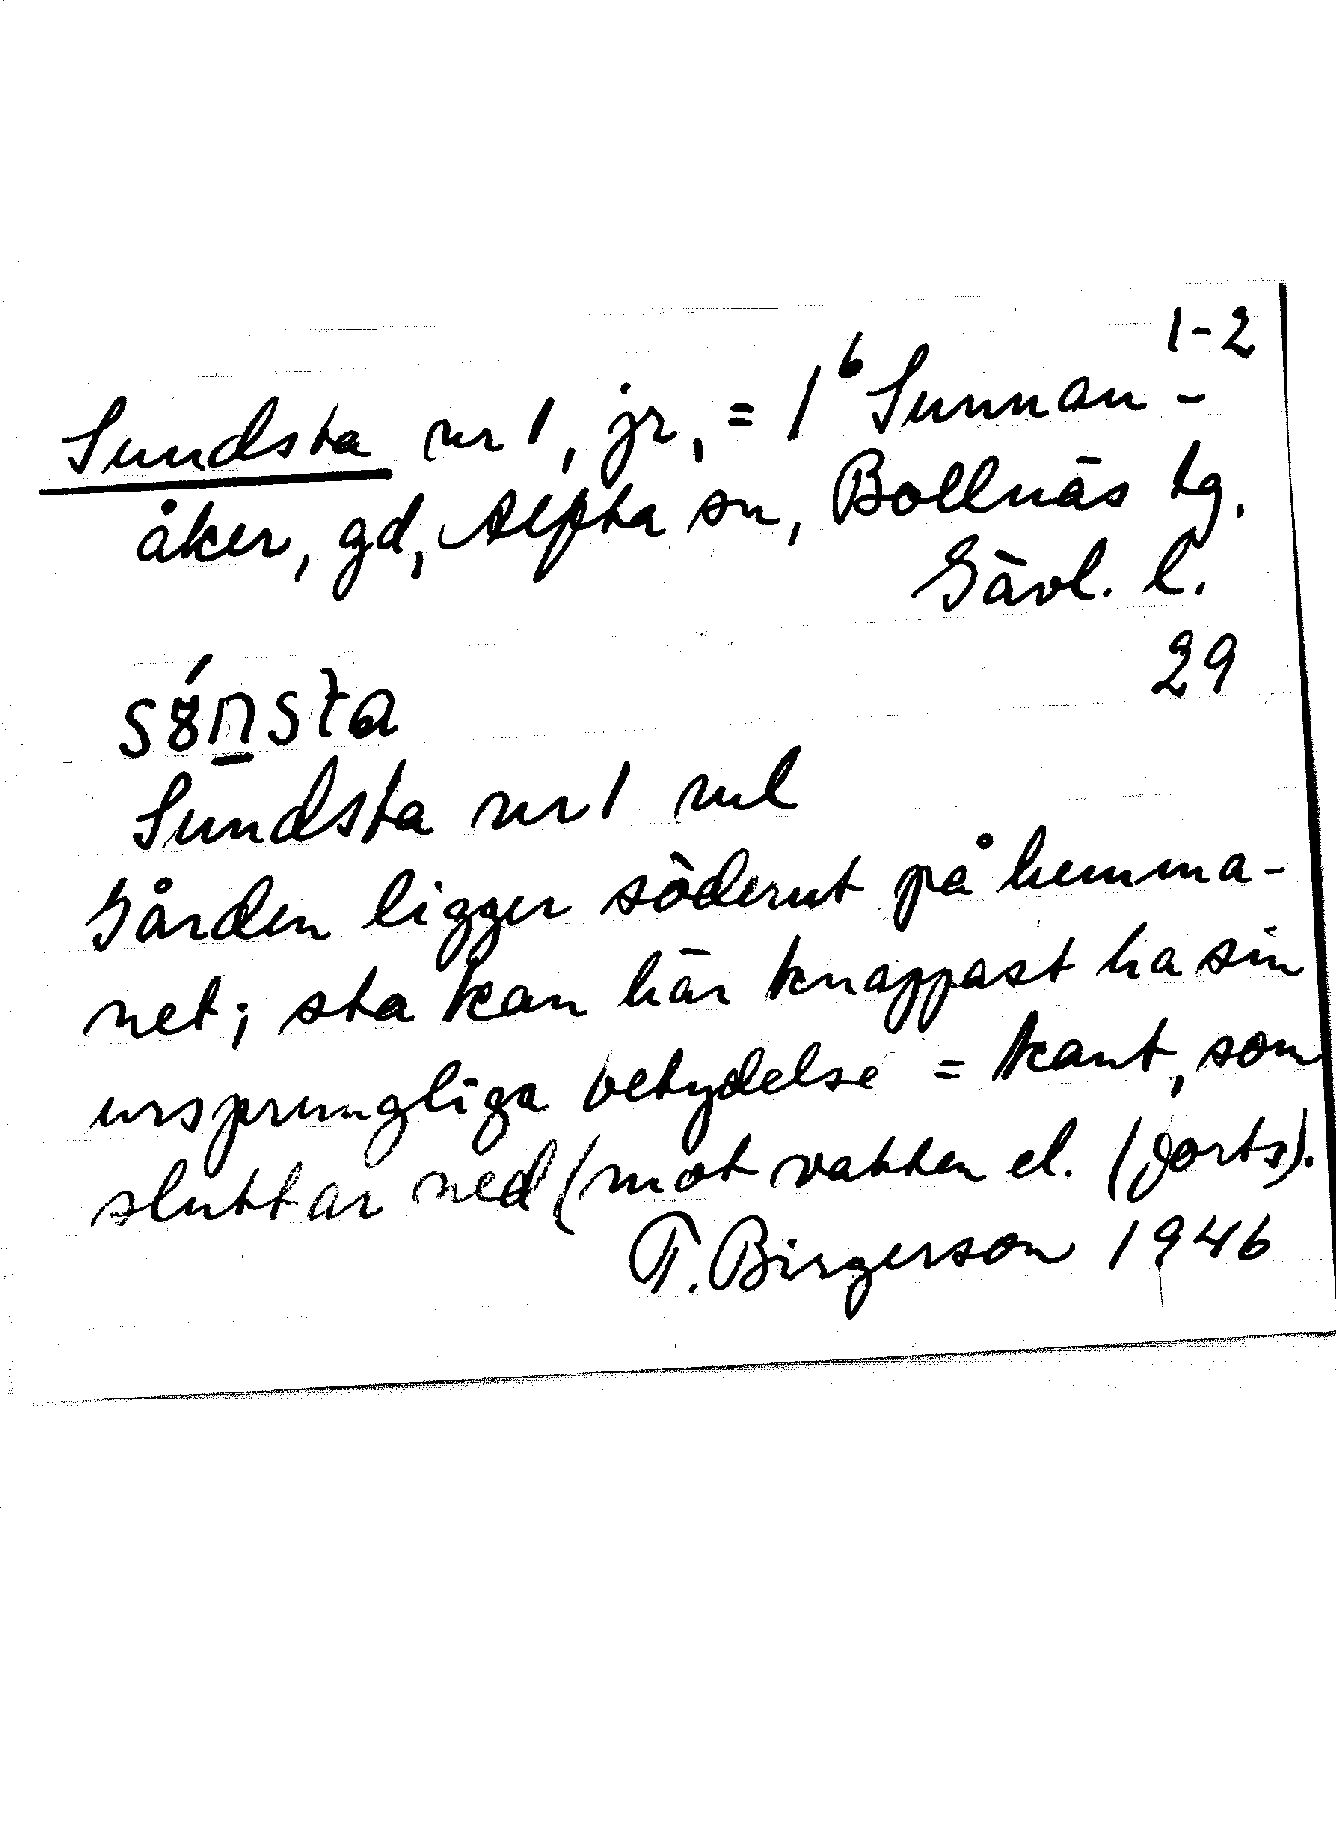 1-2
Sundsta nr 1, jr, = 1⁶ Sunnan-
åker, gd, Alfta sn, Bollnäs tg.
Gävl. l.
29
sȣ́n̲sta
Sundsta nr 1 ml
Gården ligger söderut på hemma-
net; sta kan här knappast ha sin
ursprungliga betydelse = kant, som
sluttar ned (mot vatten el. (forts).
F. Birgerson 1946